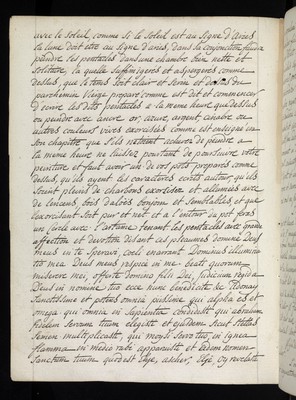 avec le soleil, comme si le soleil est au signe d'aries
la lune doit etre au signe d'aries, dans la conjonction faudra
peindre les pentacles dans une chambre bien nette et
solitaire, la quelle suffumigeres et aspergeres comme
dessus, que le temps soit clair et serein et du
parchemin Vierge preparé comme est dit et commencer
d'ecrire les dits pentacles a la meme heure que dessus
ou peindre avec ancre or, azure, argent, cinabre ou
autres couleurs vives exorcisées comme est enseigné en
son chapitre que s'ils n'etoient achevés de peindre a
la meme heure ne laissez pourtant de poursuivre votre
peinture et faut avoir un pot preparé comme
dessus, qu'ils ayent les caracteres ecrits autour qu'ils
soient pleins de charbons exorcisés et allumées avec
de l'encens, bois d'aloes et semblables et que
l'exorcisant soit pur et net et a l'entour du pot fera
un cercle avec l'artame tenant les pentacles avec grande
affection et devotion disant ces pseaumes domine Deus
meus in te speravi, coeli enarrant, Dominus illuminatio
mea Deus meus respice in me exalt quoniam,
miserere mei, afferte domino filii dei, judicium regi da
Deus in nomine tuo ecce nunc benedicite & Adonay
sanctissime et potens omnia publime qui alpha es et
omega qui omnia in sapientia condidisti qui abraham
fidelem servum tuum elegisti et ejusdem sicut stellas
semen multiplicasti, qui moysi servo tuo, in ignea
flamma in medio rubi apparuisti et eidem nomen
sanctum tuum quod est Eye, ascher, Eye, revelasti